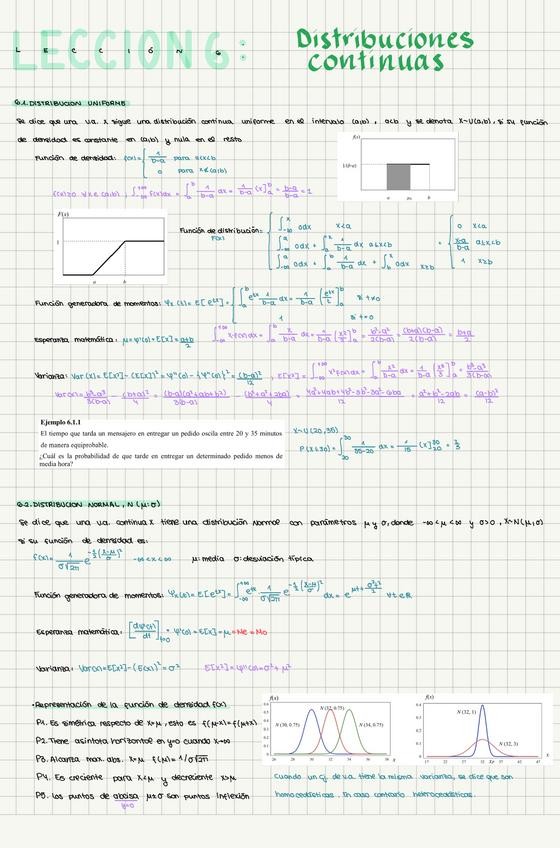 LECCIÓN 6:
Distribuciones
continuas
6.1. DISTRIBUCIÓN UNIFORME
Se dice que una v.a. X sigue una distribución continua uniforme en el intervalo (a,b), a<b y se denota X~U(a,b), si su función
de densidad es constante en (a,b) y nula en el resto
Función de densidad: f(x)= { 1/(b-a) para a≤x≤b
0 para x∉(a,b)
f(x)≥0 ∀x∈(a,b), ∫_{-∞}^{+∞} f(x)dx = ∫_a^b 1/(b-a) dx = 1/(b-a) [x]_a^b = (b-a)/(b-a) = 1
f(x)
1/(b-a)
a b x
F(x)
1
a b
Función de distribución: F(x)
∫_{-∞}^x 0dx x<a
∫_{-∞}^a 0dx + ∫_a^x 1/(b-a) dx a≤x<b
∫_{-∞}^a 0dx + ∫_a^b 1/(b-a) dx + ∫_b^x 0dx x≥b
= { 0 x<a
(x-a)/(b-a) a≤x<b
1 x≥b
Función generadora de momentos: Ψx(t) = E[e^{tx}] = { ∫_a^b e^{tx} 1/(b-a) dx = 1/(b-a) [e^{tx}/t]_a^b si t≠0
1 si t=0
Esperanza matemática: μ=Ψ'(0)=E[X]=(a+b)/2 ∫_{-∞}^{+∞} x·f(x)dx = ∫_a^b x/(b-a) dx = 1/(b-a) [x²/2]_a^b = (b²-a²)/2(b-a) = (b+a)(b-a)/2(b-a) = (b+a)/2
Varianza: Var(X)=E[X²]-(E[X])²=Ψ''(0)-{Ψ'(0)}²=(b-a)²/12, E[X²]=∫_{-∞}^{+∞} x²f(x)dx = ∫_a^b x²/(b-a) dx = 1/(b-a) [x³/3]_a^b = (b³-a³)/3(b-a)
Var(X)=(b³-a³)/3(b-a) - (b+a)²/4 = (b-a)(a²+ab+b²)/3(b-a) - (b²+a²+2ba)/4 = (4a²+4ab+4b²-3b²-3a²-6ba)/12 = (a²+b²-2ab)/12 = (a-b)²/12
Ejemplo 6.1.1
El tiempo que tarda un mensajero en entregar un pedido oscila entre 20 y 35 minutos
de manera equiprobable.
¿Cuál es la probabilidad de que tarde en entregar un determinado pedido menos de
media hora?
X~U(20,35)
P(X≤30)=∫_{20}^{30} 1/(35-20) dx = 1/15 [x]_{20}^{30} = 2/3
6.2. DISTRIBUCIÓN NORMAL, N(μ;σ)
Se dice que una v.a. continua X tiene una distribución Normal con parámetros μ y σ, donde -∞<μ<∞ y σ>0, X~N(μ,σ)
si su función de densidad es:
f(x)= 1/(σ√2π) e^{-1/2((x-μ)/σ)²} -∞<x<∞ μ: media σ: desviación típica
Función generadora de momentos: Ψx(t)=E[e^{tx}]=∫_{-∞}^{+∞} e^{tx} 1/(σ√2π) e^{-1/2((x-μ)/σ)²} dx = e^{μt+σ²t²/2} ∀t∈R
Esperanza matemática: [dΨ(t)/dt]_{t=0} = Ψ'(0)=E[X]=μ=Me=Mo
Varianza: Var(X)=E[X²]-(E(X))²=σ² E[X²]=Ψ''(0)=σ²+μ²
•Representación de la función de densidad f(x)
P1. Es simétrica respecto de x=μ, esto es f(μ-x)=f(μ+x)
P2. Tiene asíntota horizontal en y=0 cuando x→∞
P3. Alcanza max. abs. x=μ f(μ)=1/σ√2π
P4. Es creciente para x<μ y decreciente x>μ
P5. Los puntos de abcisa μ±σ son puntos inflexión
y=0
f(x)
N(32, 0.75)
N(30, 0.75)
N(34, 0.75)
f(x)
N(32, 1)
N(32, 3)
Cuando un cj. de v.a. tiene la misma varianza, se dice que son
homocedásticas. En caso contrario heterocedásticas.